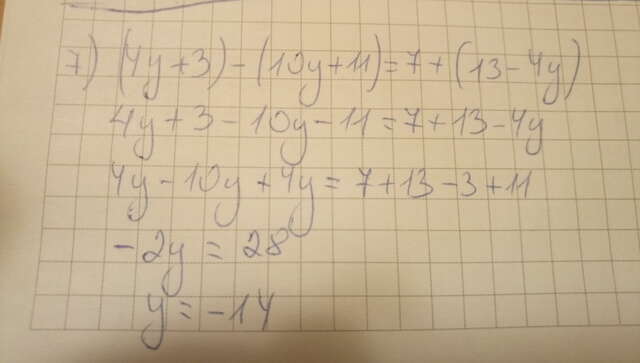 7) (4y+3)-(10y+11)=7+(13-4y)
4y+3-10y-11=7+13-4y
4y-10y+4y=7+13-3+11
-2y=28
y=-14